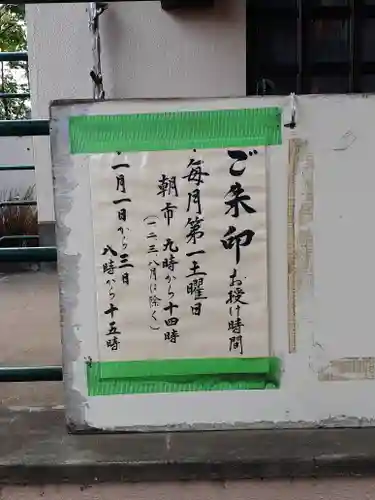 ご朱印お授け時間
・毎月第一土曜日
朝市 九時から十四時
(二、三、八月は除く)
・一月一日から三日
八時から十五時